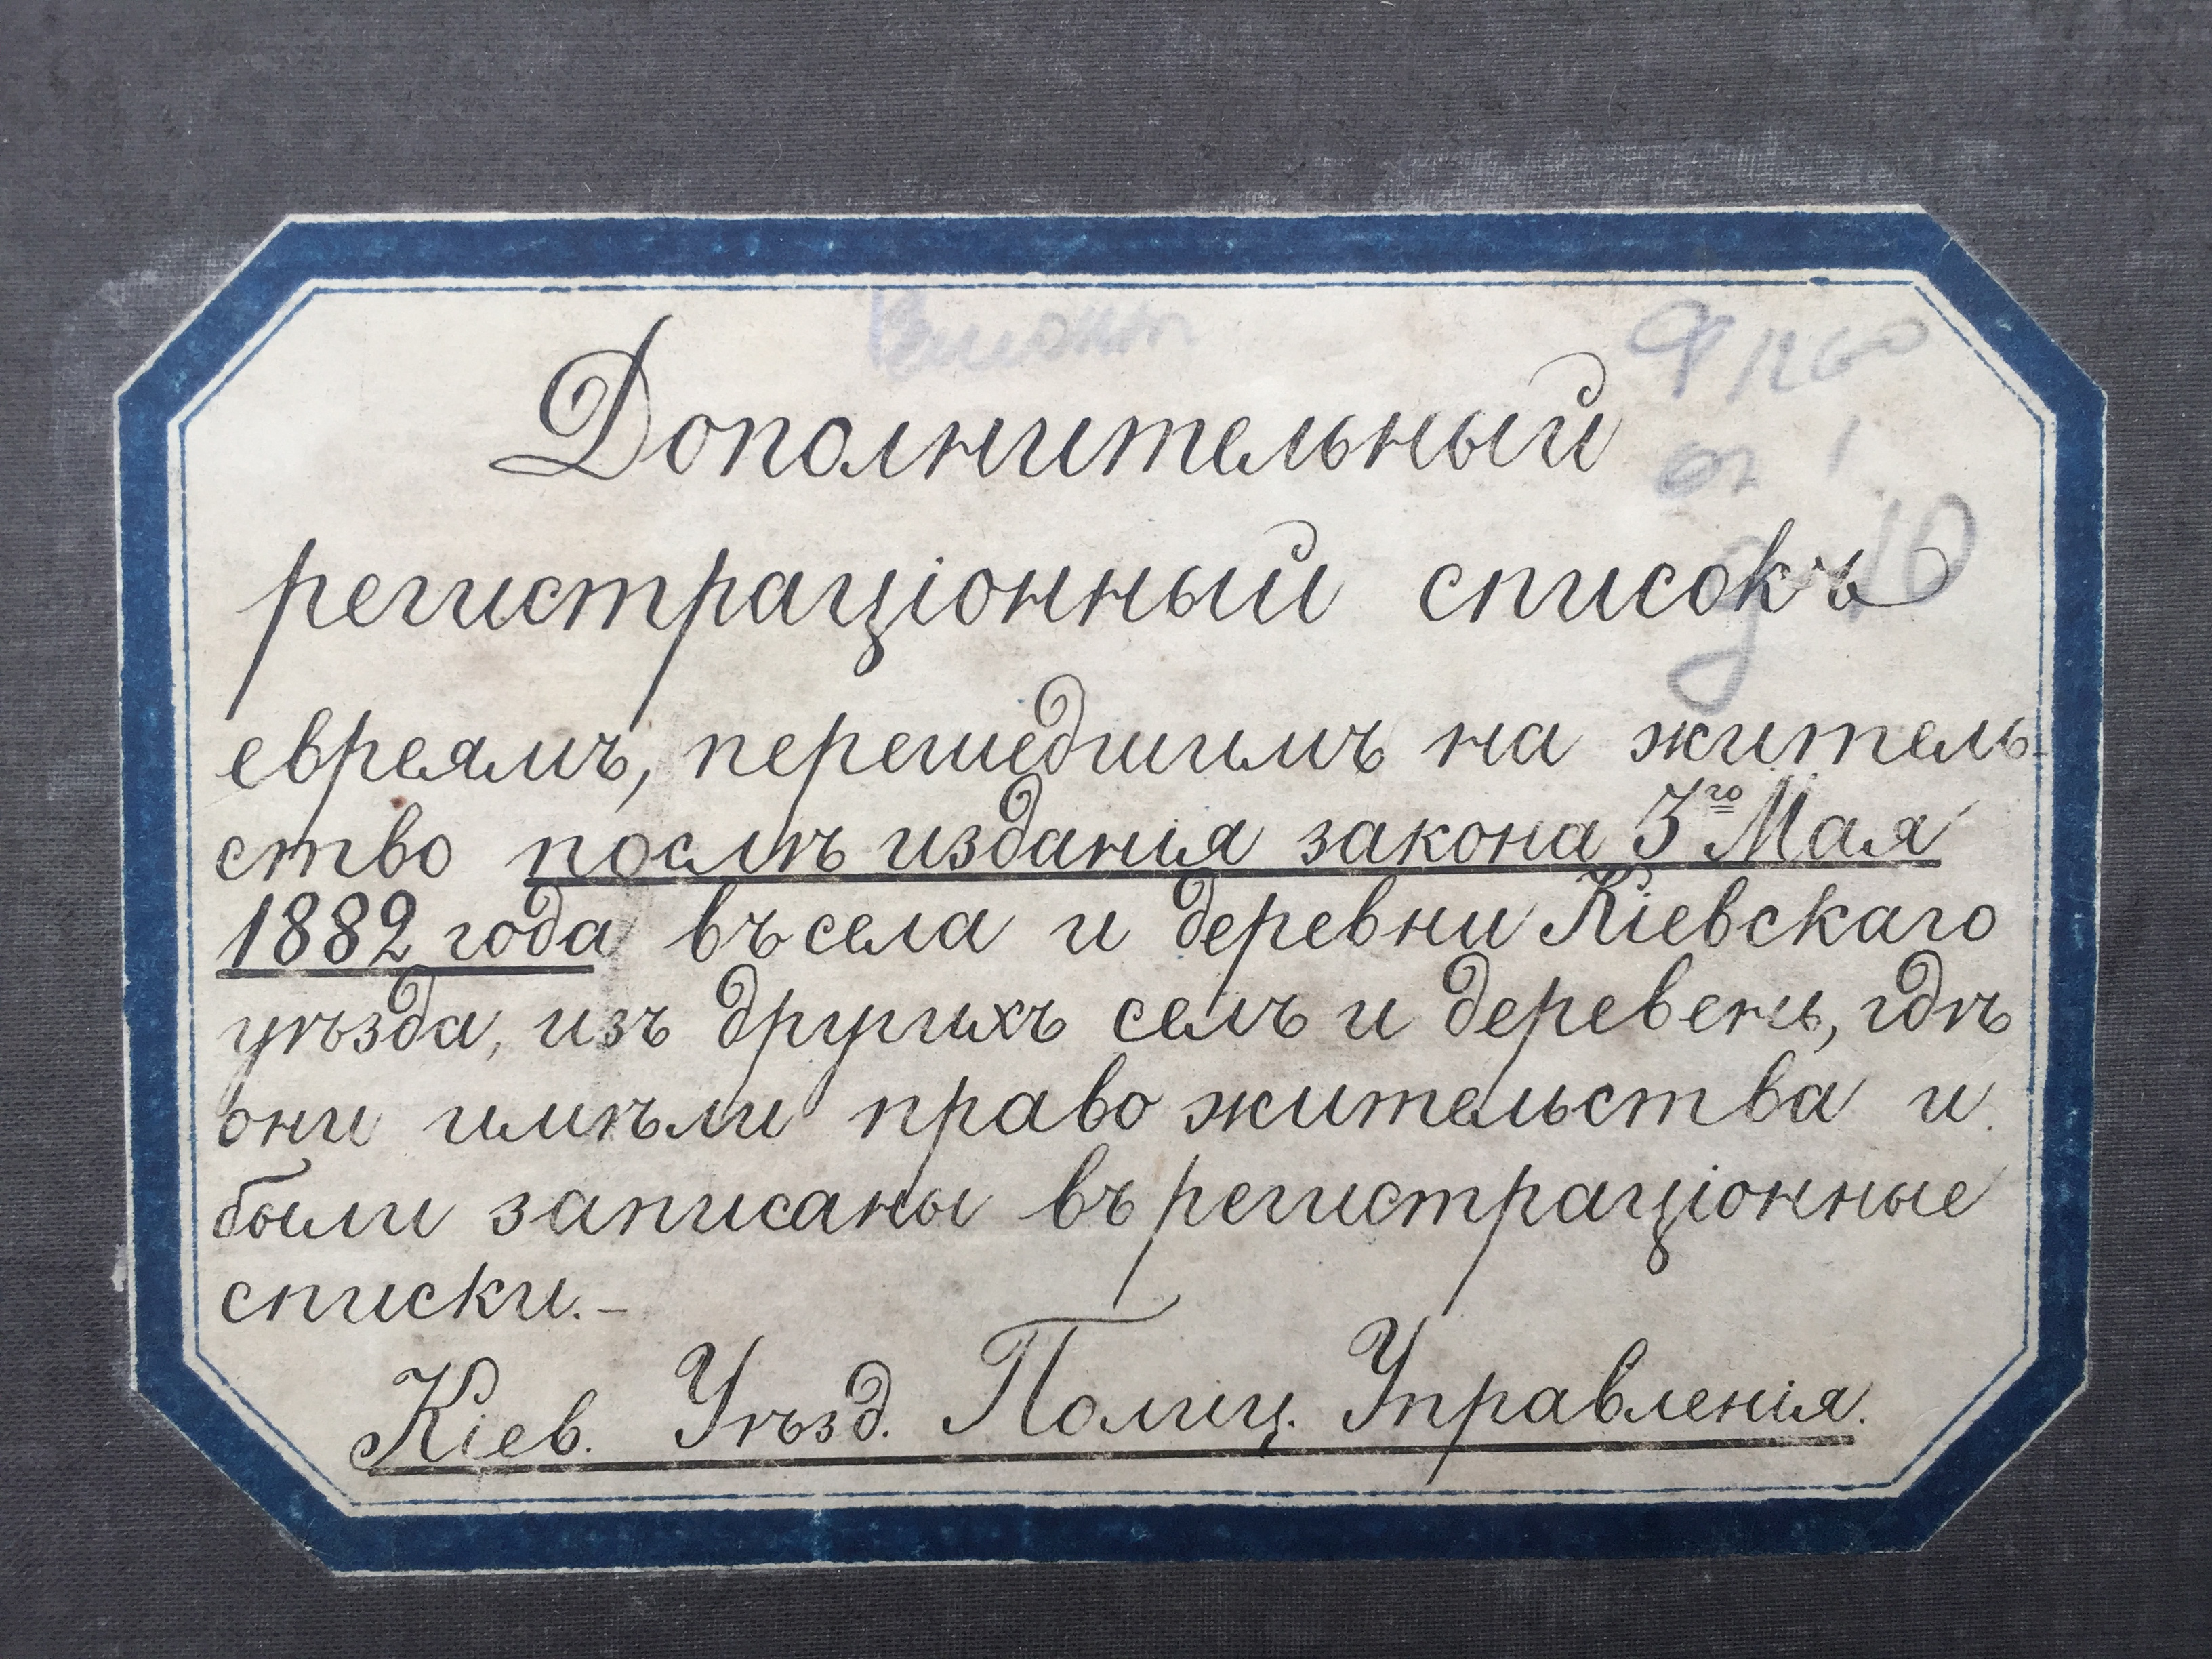 Дополнительный
регистраціонный списокъ
евреямъ, перешедшимъ на житель-
ство послѣ изданія закона 3го Мая
1882 года въ села и деревни Кіевскаго
уѣзда, изъ другихъ селъ и деревень, гдѣ
они имѣли право жительства и
были записаны въ регистраціонные
списки.-
Кіев. Уѣзд. Полиц. Управленія.